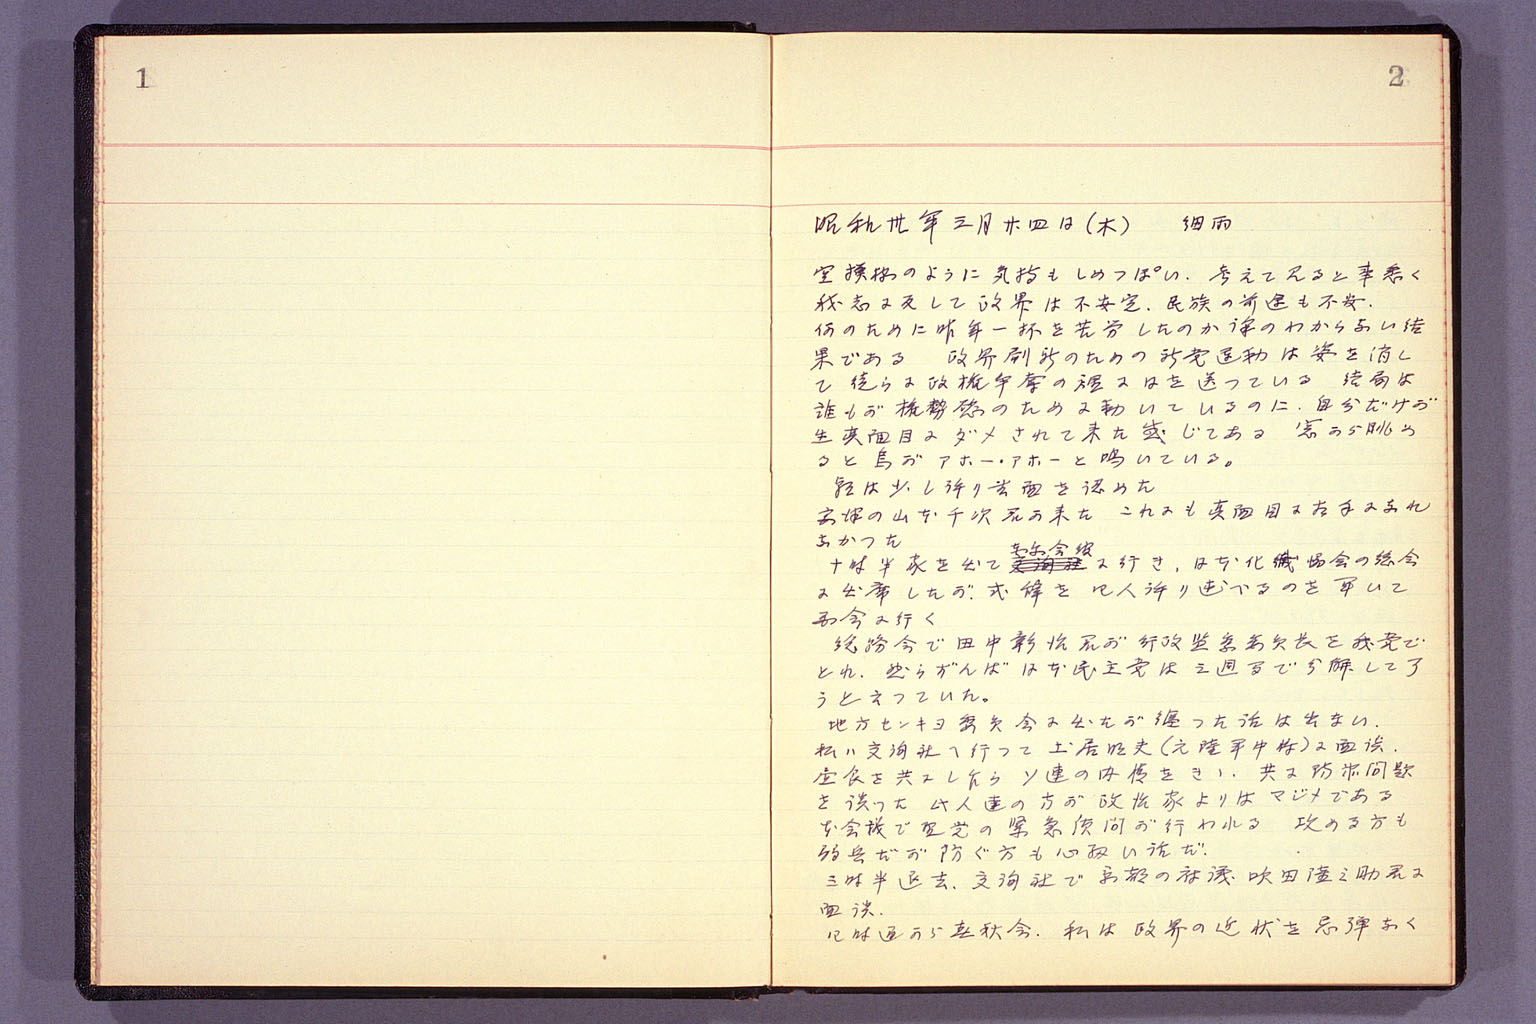 1
2
昭和卅年三月廿四日(木) 細雨
空模様のように気持もしめっぽい. 考えて見ると事悉く
我志に反して政界は不安定. 民族の前途も不安.
何のために昨年一杯を苦労したのか訳のわからない結
果である 政界刷新のための新党運動は姿を消し
て徒らに政権争奪の裡に日を送っている 結局は
誰もが権勢慾のために動いているのに. 自分だけが
生真面目にダメされて来た感じである 窓から眺め
ると烏がアホー・アホーと鳴いている。
朝は少し許り書面を認めた
の山本千次君が来た これにも真面目に なれ
なかった
十時半家を出て に行き, 日本化繊協会の総会
に出席したが. 式辞を四人許り述べるのを聞いて
に行く
総務会で田中彰治君が行政監察委員長を我党で
とれ. 然らずんば日本民主党は三週るで分解して了
うと云っていた。
地方センキヨ委員会に出たが纏った話は出ない.
私ハ交洵社へ行って土居明夫(元陸軍中将)に面談.
昼食を共にし乍らソ連の内情をきゝ. 共に防衛問題
を談った 此人達の方が政治家よりはマジメである
本会議で野党の緊急質問が行われる 攻める方も
弱兵だが防ぐ方も心細い話だ.
三時半退去. 交洵社で京都の社議 吹田 之助君に
面談.
四時過から春秋会. 私は政界の近状を忌弾なく